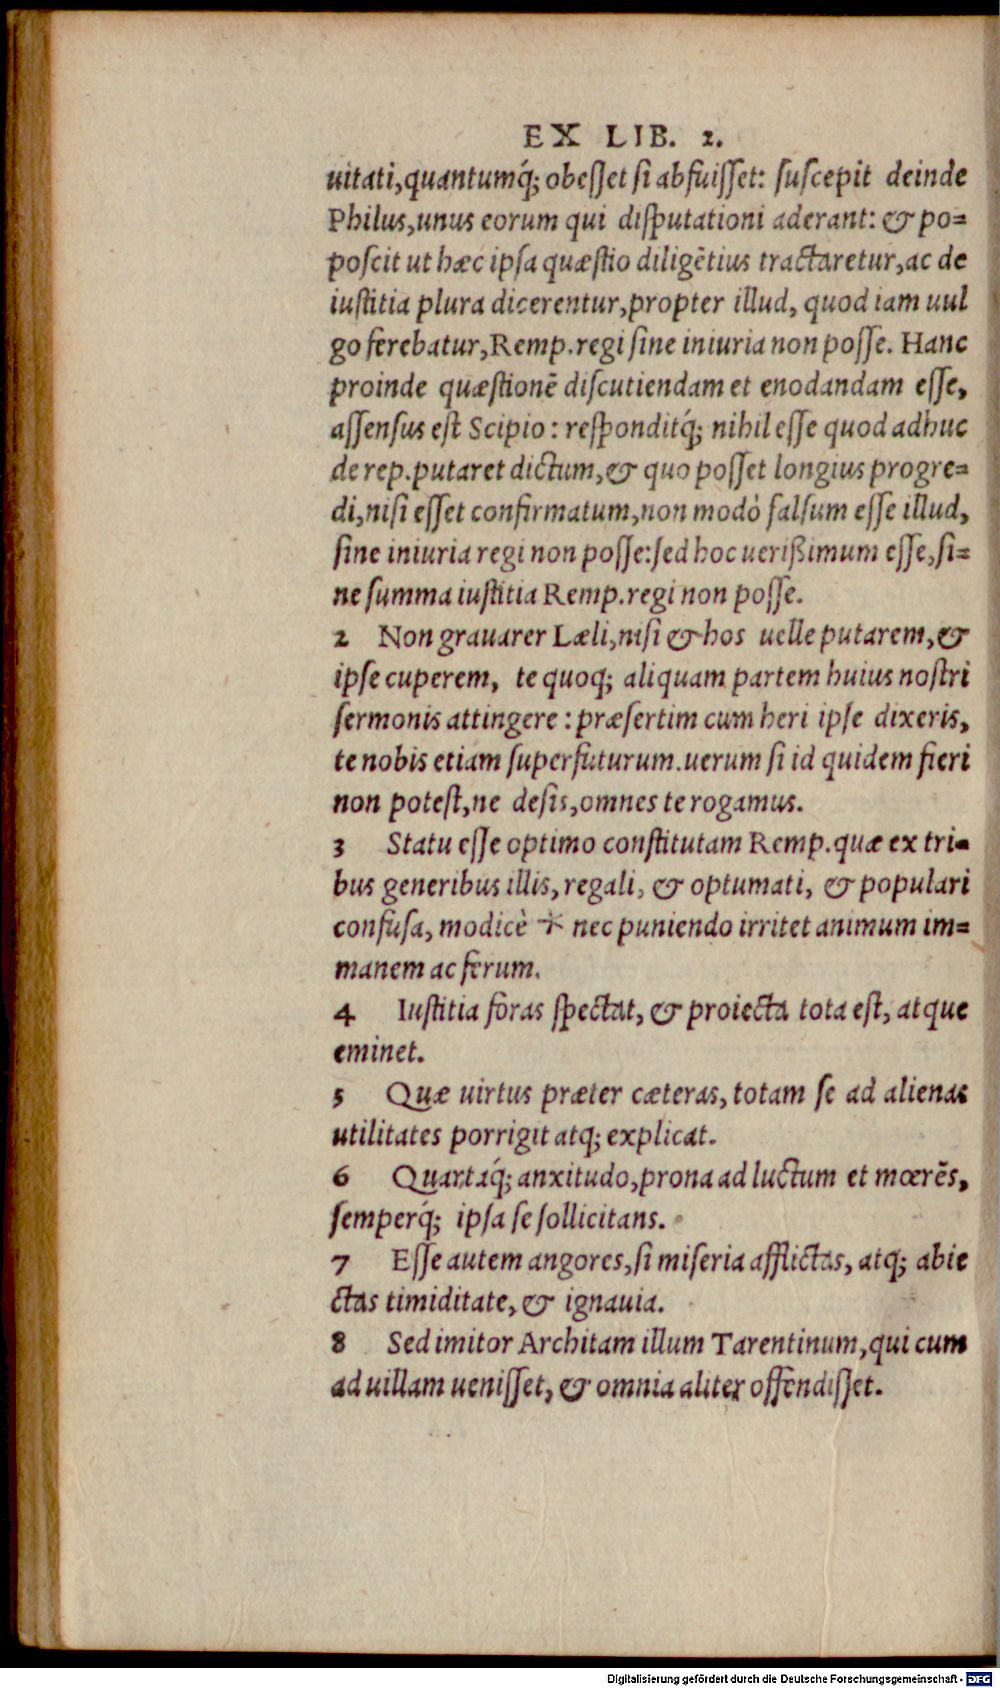 EX LIB. 2.
uitati, quantumq́; obesſet ſi abfuiſſet: ſuſcepit deinde
Philus, unus eorum qui diſputationi aderant: & po=
poſcit ut hæc ipſa quæſtio diligẽtius tractaretur, ac de
iuſtitia plura dicerentur, propter illud, quod iam uul
go ferebatur, Remp. regi ſine iniuria non poſſe. Hanc
proinde quæſtionẽ diſcutiendam et enodandam eſſe,
aſſenſus eſt Scipio: reſponditq́; nihil eſſe quod adhuc
de rep. putaret dictum, & quo poſſet longius progre=
di, niſi eſſet confirmatum, non modò falſum eſſe illud,
ſine iniuria regi non poſſe: ſed hoc ueriſsimum eſſe, ſi=
ne ſumma iuſtitia Remp. regi non poſſe.
2 Non grauarer Læli, niſi & hos uelle putarem, &
ipſe cuperem, te quoq; aliquam partem huius noſtri
ſermonis attingere: præſertim cum heri ipſe dixeris,
te nobis etiam ſuperfuturum. uerum ſi id quidem fieri
non poteſt, ne deſis, omnes te rogamus.
3 Statu eſſe optimo conſtitutam Remp. quæ ex tri=
bus generibus illis, regali, & optumati, & populari
confuſa, modicè * nec puniendo irritet animum im=
manem ac ferum.
4 Iuſtitia foras ſpectat, & proiecta tota eſt, atque
eminet.
5 Quæ uirtus præter cæteras, totam ſe ad alienas
utilitates porrigit atq; explicat.
6 Quartaq́; anxitudo, prona ad luctum et mœrẽs,
ſemperq́; ipſa ſe ſollicitans.
7 Eſſe autem angores, ſi miſeria afflictas, atq; abie
ctas timiditate, & ignauia.
8 Sed imitor Architam illum Tarentinum, qui cum
ad uillam ueniſſet, & omnia aliter offendiſſet.
Digitalisierung gefördert durch die Deutsche Forschungsgemeinschaft - DFG